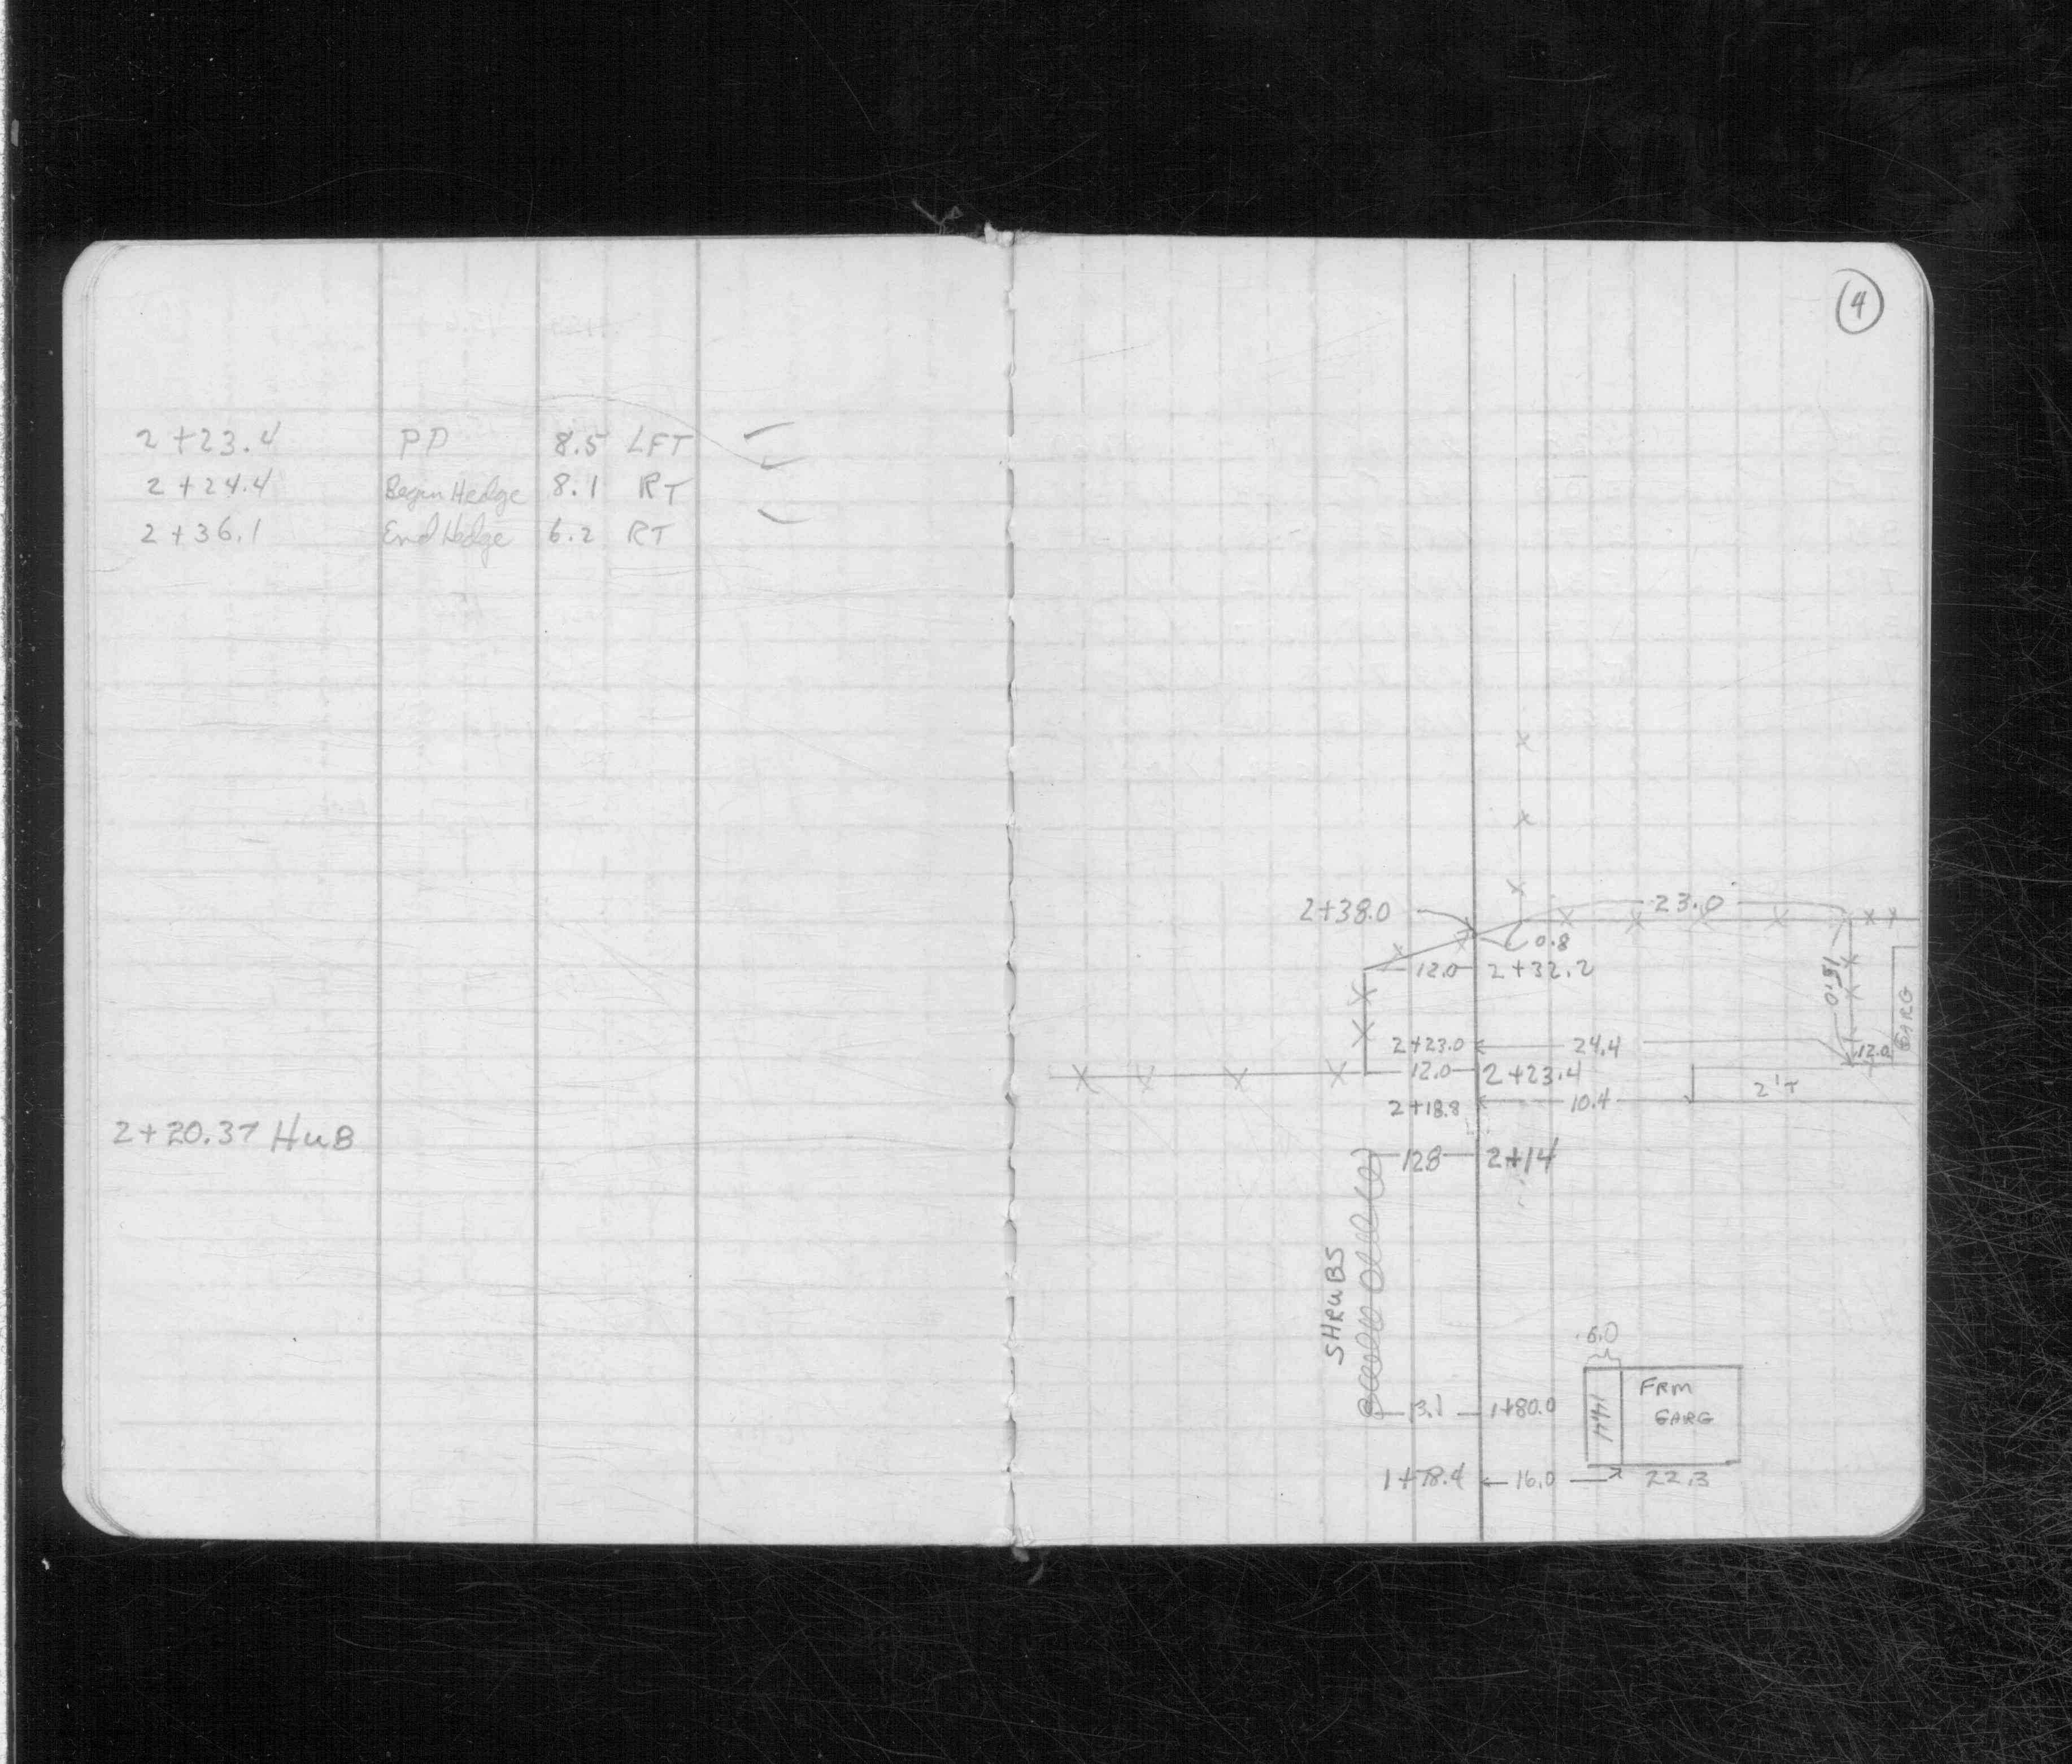 2+23.4 PP 8.5 LFT
2+24.4 Begin Hedge 8.1 RT
2+36.1 End Hedge 6.2 RT
2+20.37 HUB
4
2+38.0
23.0
0.8
12.0 2+32.2
15.0
GARG
2+23.0 24.4
12.0
12.0 2+23.4
2'T
2+18.8 10.4
128 2+14
SHRUBS
6.0
FRM
GARG
13.1 1+80.0
1+78.4 16.0 22.3